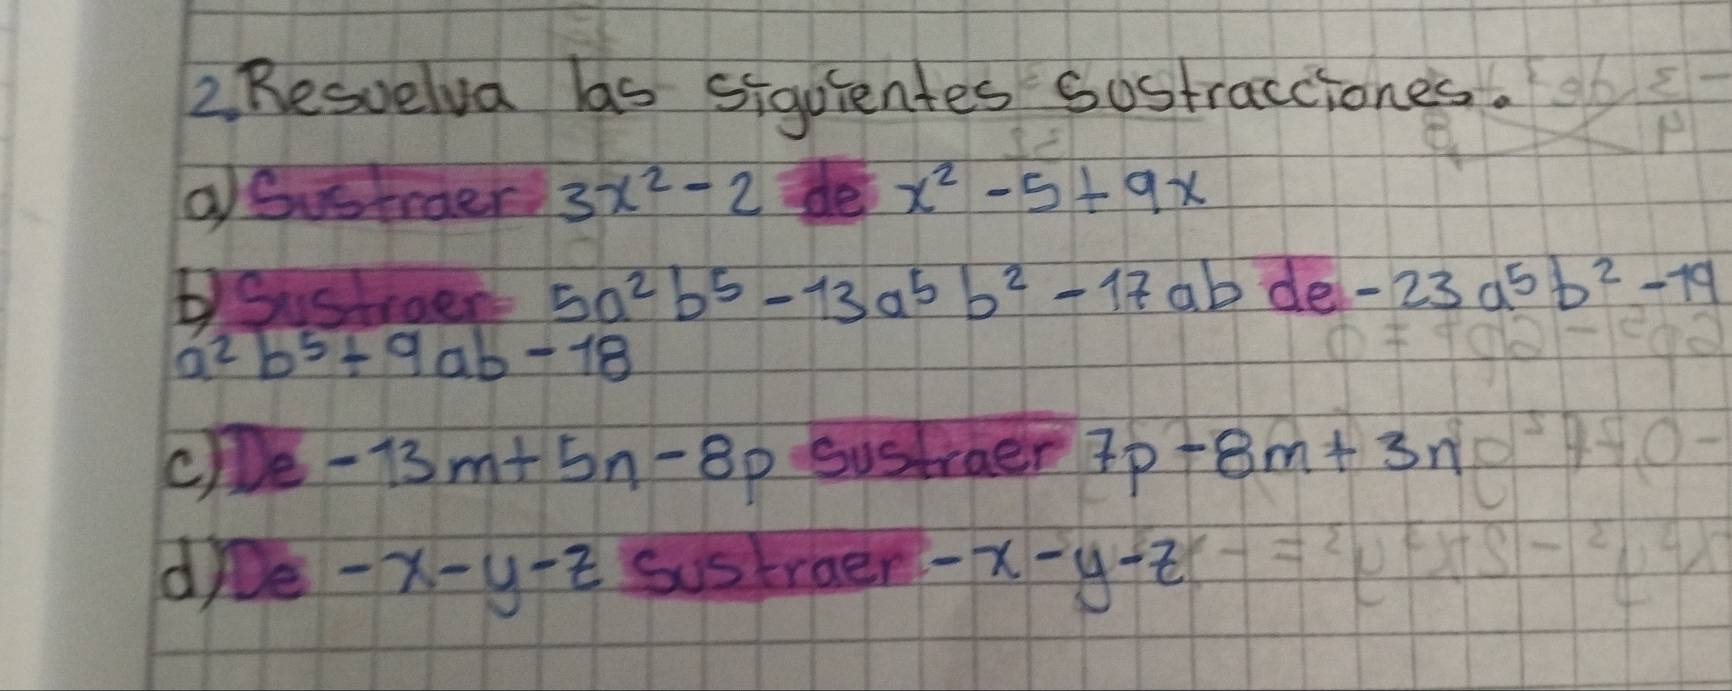 2. Resuelva las siguientes sustracciones.
a) Sustraer 3x² - 2 de x² - 5 + 9x
b) Sustraer 5a²b⁵ - 13a⁵b² - 17ab de - 23a⁵b² - 19
a²b⁵ + 9ab - 18
c) De - 13m + 5n - 8p sustraer 7p - 8m + 3n
d) De - x - y - z sustraer - x - y - z